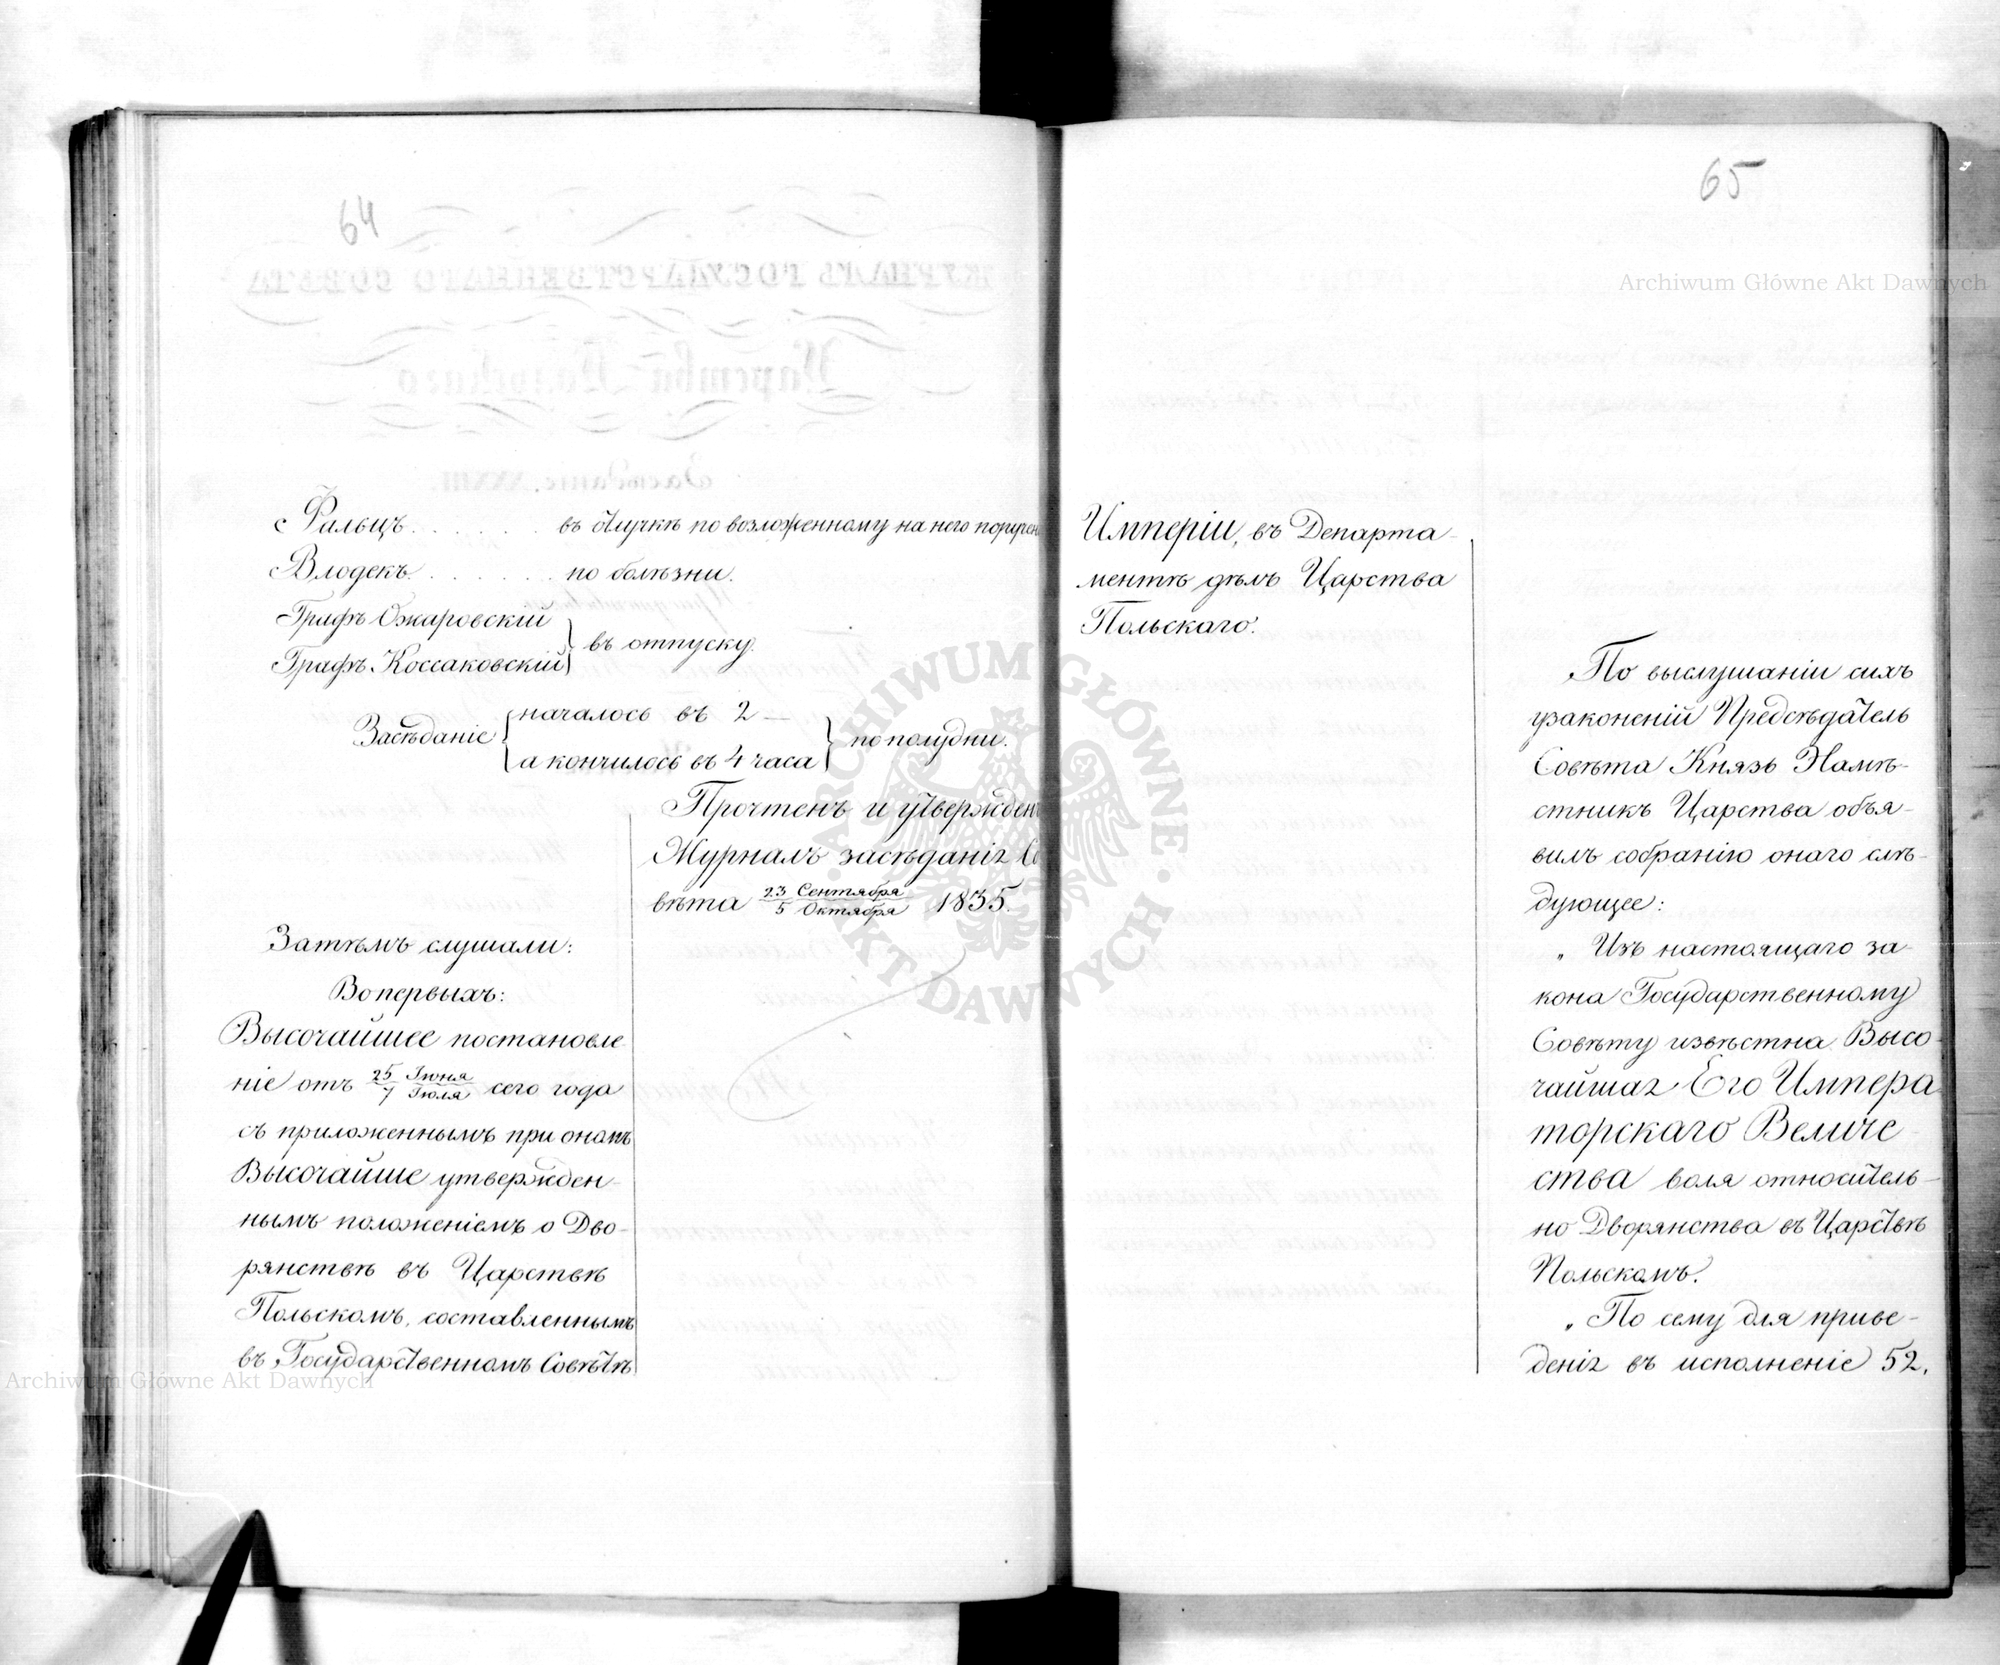 64
Фальцъ . . . . . . въ отлучкѣ по возложенному на него
Влодекъ . . . . . . по болѣзни.
Графъ Ожаровскій
Графъ Коссаковскій } въ отпуску.
Засѣданіе { началось въ 2 —
а кончилось въ 4 часа } по полудни.
Прочтенъ и утвержденъ
Журналъ засѣданія Со
вѣта 23 Сентября / 5 Октября 1835.
Затѣмъ слушали:
Вопервыхъ:
Высочайшее постановле
ніе отъ 25 Іюня / 7 Іюля сего года
съ приложеннымъ при ономъ
Высочайше утвержден-
нымъ положеніемъ о Дво-
рянствѣ въ Царствѣ
Польскомъ, составленнымъ
въ Государственномъ Совѣтѣ
65
Имперіи, въ Департа-
ментѣ дѣлъ Царства
Польскаго.
По выслушаніи сихъ
узаконеній Предсѣдатель
Совѣта Князь Намѣ-
стникъ Царства объя-
вилъ собранію онаго слѣ-
дующее:
„Изъ настоящаго за-
кона Государственному
Совѣту извѣстна Высо-
чайшая Его Импера
торскаго Величе-
ства воля относитель-
но Дворянства въ Царствѣ
Польскомъ.
„По сему для приве-
денія въ исполненіе 52,
Archiwum Główne Akt Dawnych
Archiwum Główne Akt Dawnych
ARCHIWUM GŁÓWNE · AKT DAWNYCH ·